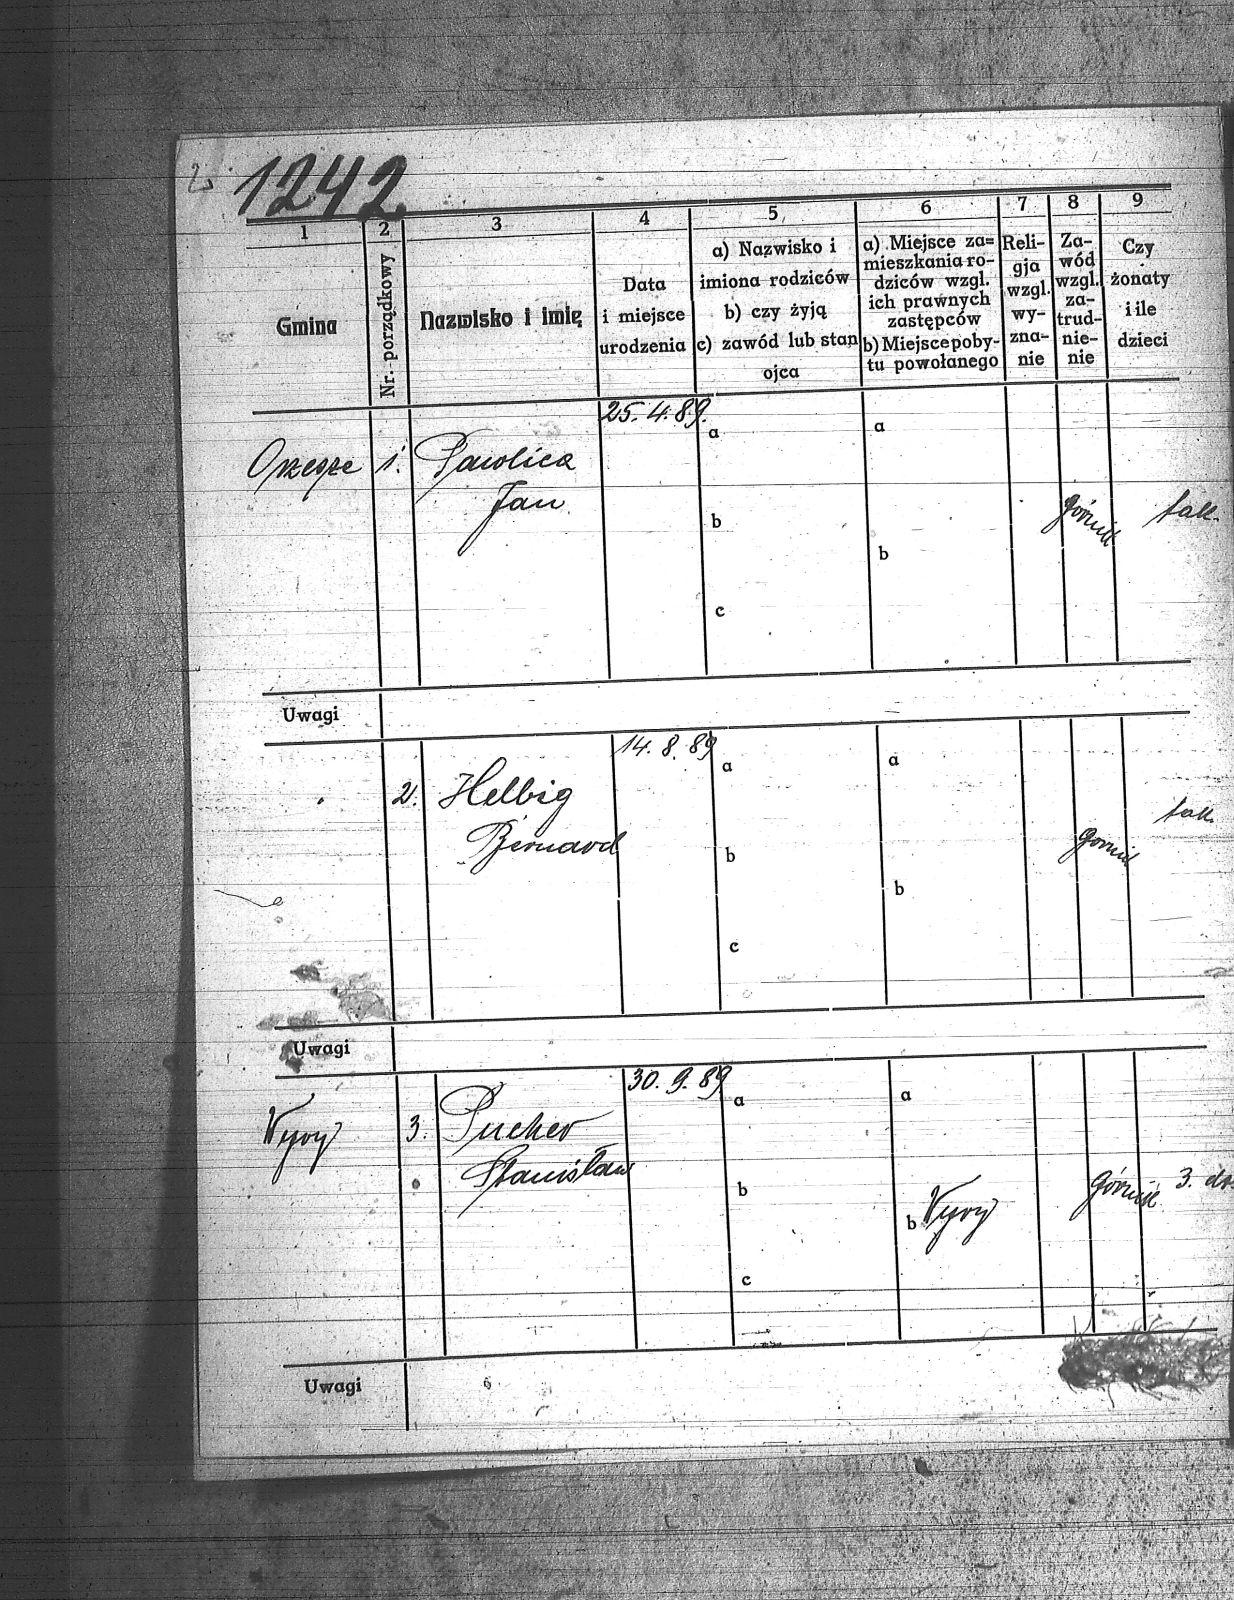 1242
1 2 3 4 5 6 7 8 9
Gmina
Nr. porządkowy
Nazwisko i imię
Data
i miejsce
urodzenia
a) Nazwisko i
imiona rodziców
b) czy żyją
c) zawód lub stan
ojca
a) Miejsce za=
mieszkania ro-
dziców wzgl.
ich prawnych
zastępców
b) Miejsce poby-
tu powołanego
Reli-
gja
wzgl.
wy-
zna-
nie
Za-
wód
wzgl.
za-
trud-
nie-
nie
Czy
żonaty
i ile
dzieci
25. 4. 89.
Orzesze 1. Pawlica
Jan
a
b
c
a
b
górnik
tak.
Uwagi
14. 8. 89
2. Helbig
Bernard
a
b
c
a
b
gornik
tak.
Uwagi
30. 9. 89
Wyry 3. Pucher
Stanisław
a
b
c
a
b Wyry
górnik
3.
Uwagi